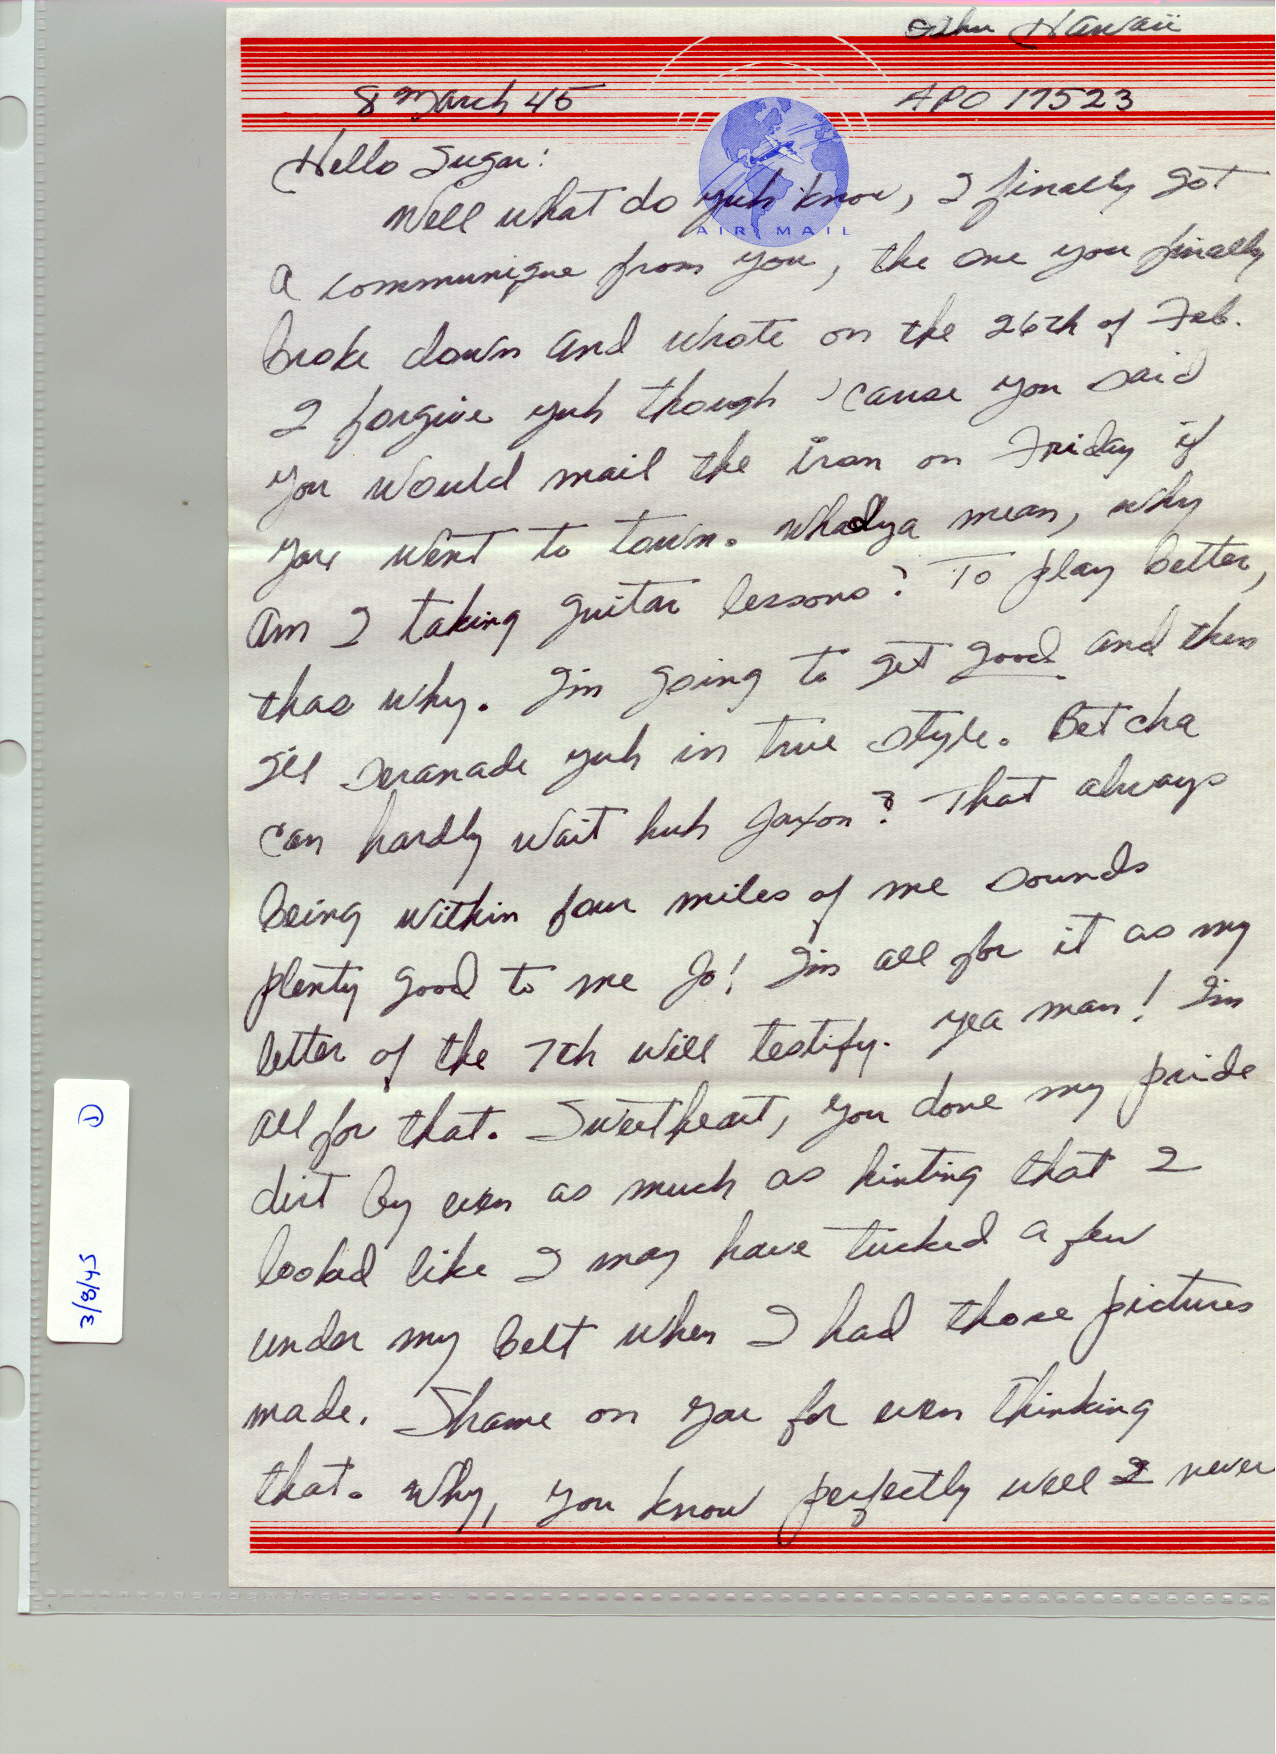 Oahu Hawaii
8 March 45 APO 17523
Hello Sugar:
Well what do yuh know, I finally got
AIR MAIL
a communique from you, the one you finally
broke down and wrote on the 26th of Feb.
I forgive yuh though 'cause you said
you would mail the iron on Friday if
you went to town. Whadya mean, why
am I taking guitar lessons? To play better,
thas why. I'm going to get good and then
I'll seranade yuh in true style. Betcha
can hardly wait huh Jaxon? That always
being within four miles of me sounds
plenty good to me Jo! I'm all for it as my
letter of the 7th will testify. Yea man! I'm
all for that. Sweetheart, you done my pride
dirt by even as much as hinting that I
looked like I may have tucked a few
under my belt when I had those pictures
made. Shame on you for even thinking
that. Why, you know perfectly well I never
3/8/45 1